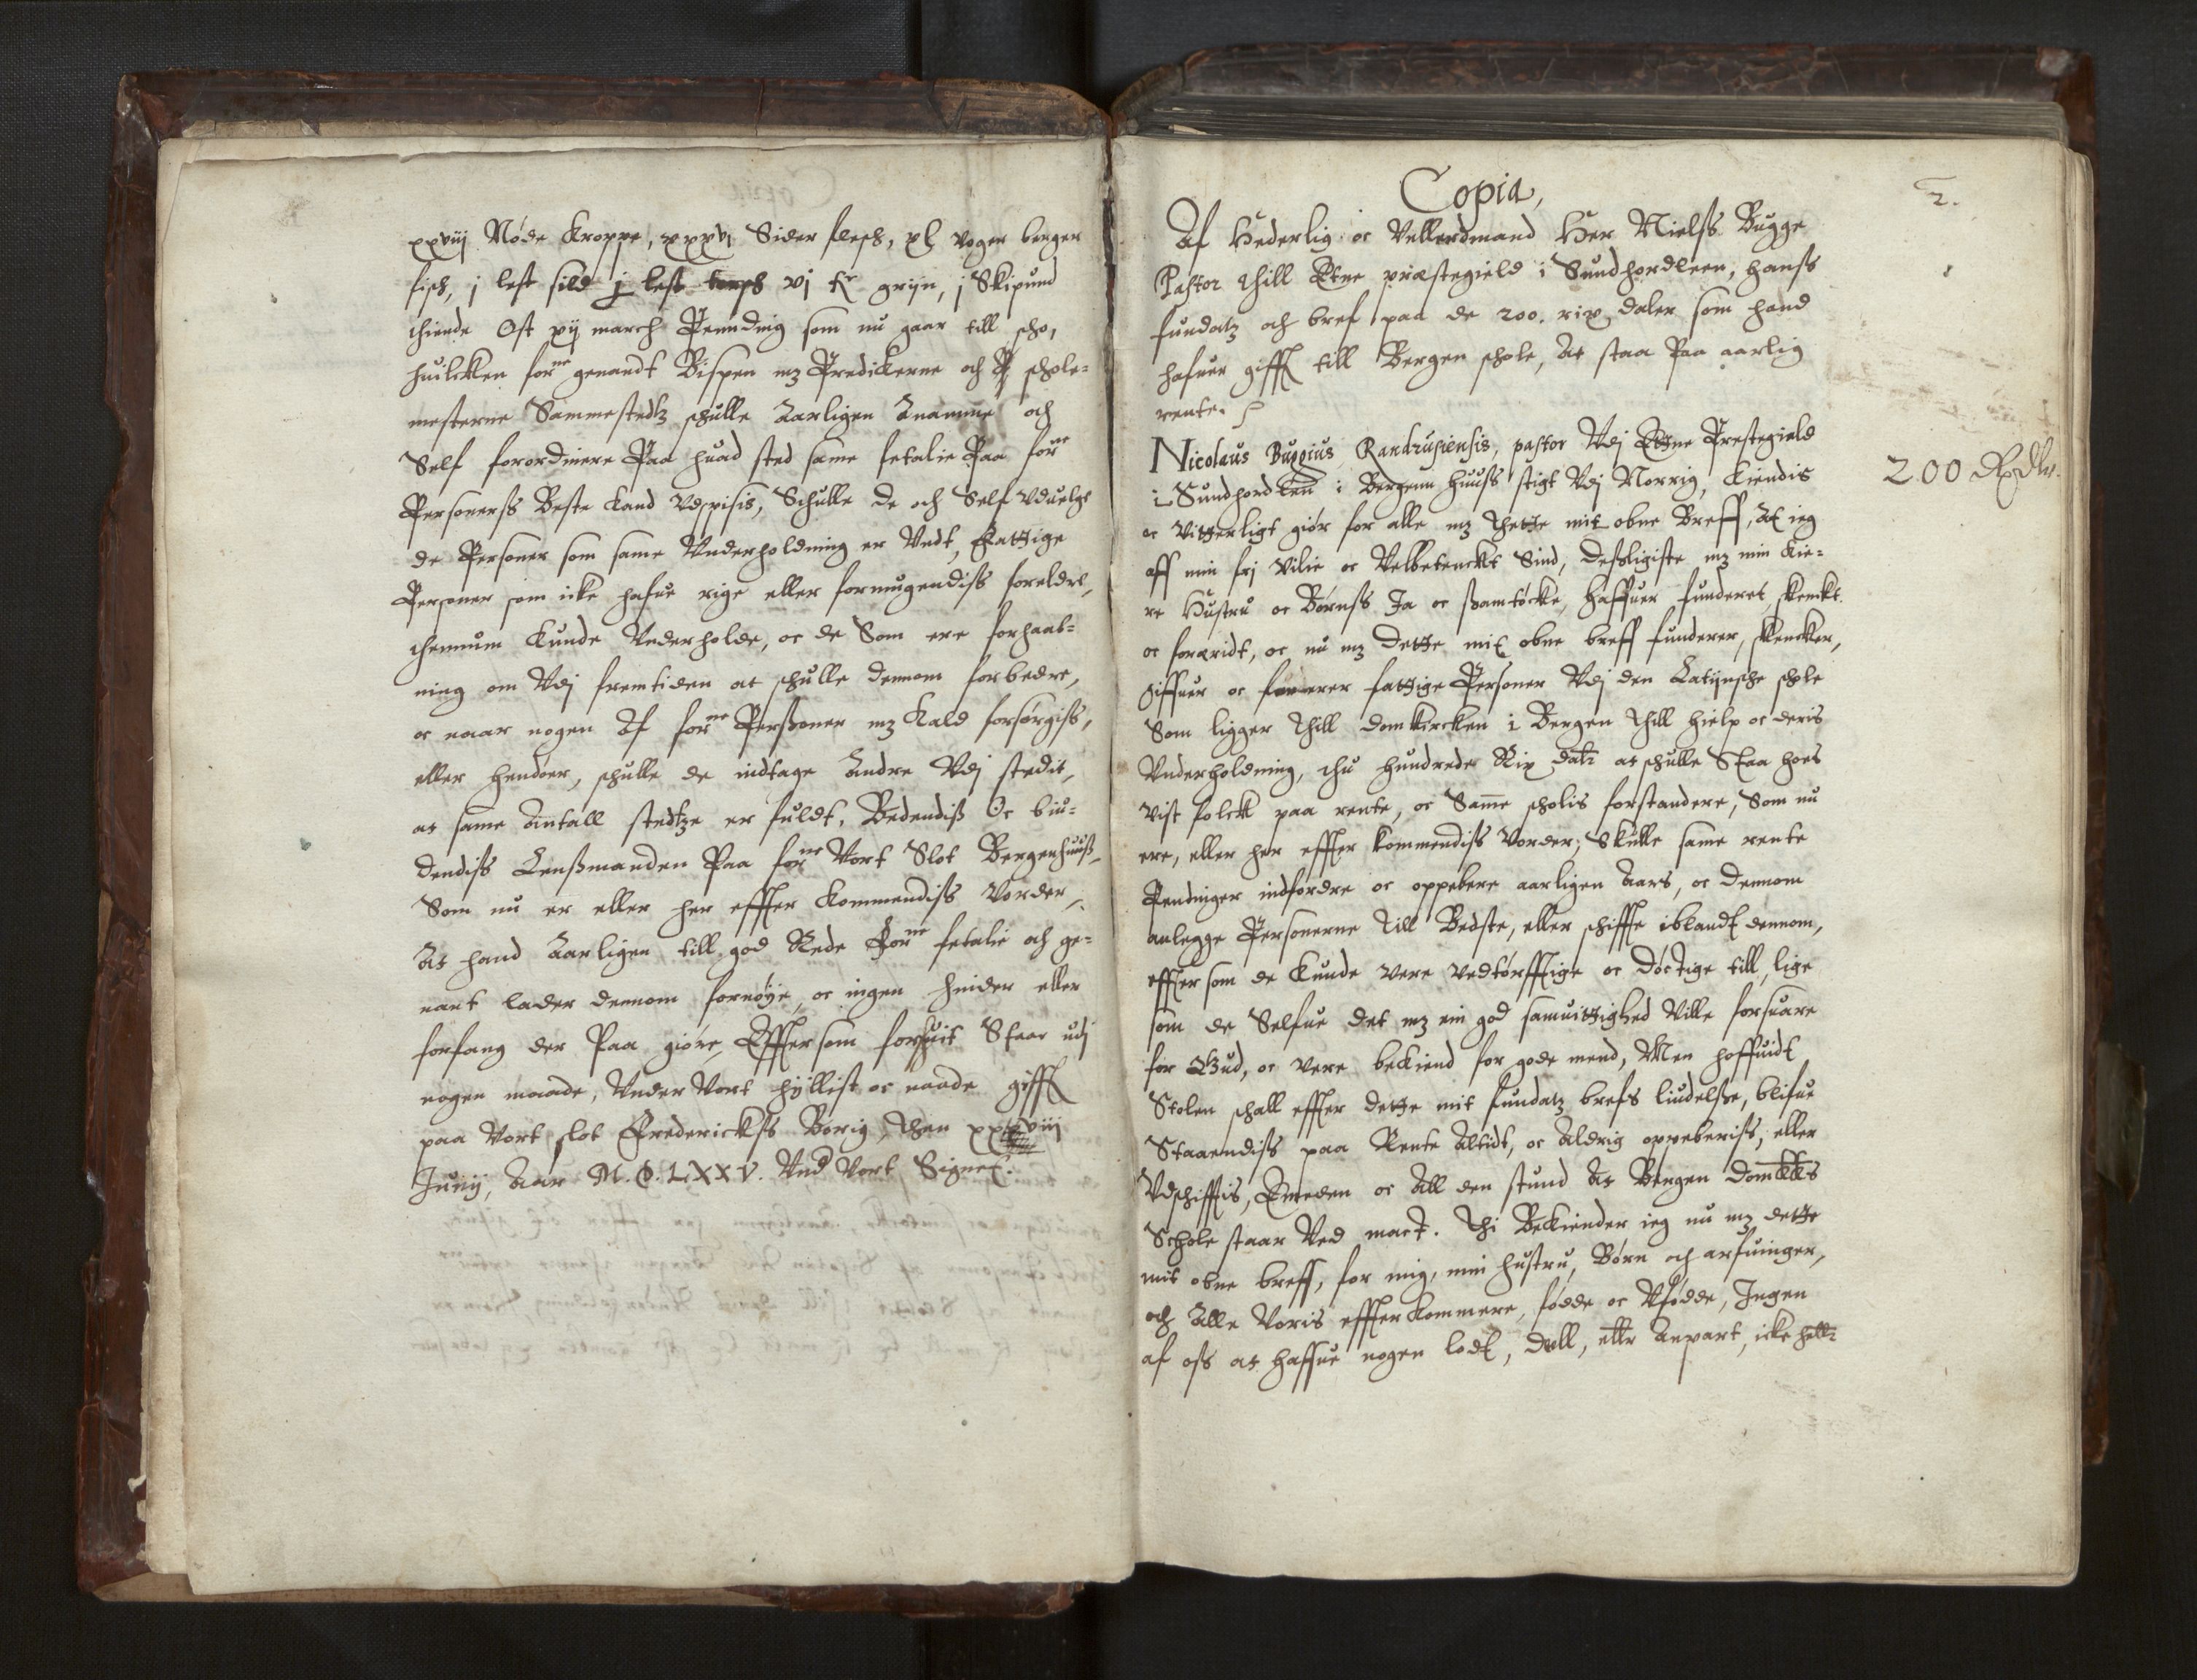 xxviij Nøde Kroppe, xxxvj Sider flesch, xl voger berger
fisch, j lest sild j lest torsch vj tr grijn, j Skipund
thiende Ost xij march Penndnig som nu gaar till scho,
huilcken forne genandt Bispen mz Predickerne och schole-
mesterne Sammestedtz schulle Aarligen Anamme och
Self forordinere Paa huad sted same fetalie Paa forne
Personerss Beste kand Vdspisis, Schulle de och Self vduelge
de Personer som same Vnderholdning er Vndt, Fattige
Personer som icke hafue rige eller formugendiss foreldre,
thennum kunde Vnderholde, oc de Som ere forhaab-
ning om Vdj fremtiden at schulle dennom forbedre,
oc naar nogen Af forne Perssoner mz Kald forsørgiss,
eller hendøer, schulle de indtage Andre Vdj stedit,
at same Antall stedtze er fuldt. Bedendiss Oc biu-
dendiss Lenssmanden Paa forne Vort Slot Bergenhuuss,
Som nu er eller her effter kommendiss Vorder,
At hand Aarligen till god Rede Forne fetalie och ge-
nant lader dennom fornøÿe, oc ingen hinder eller
forfang der Paa giøre, Effter som forskrefuit Staar udj
nogen maade, Vnder Vort hyllist oc naade gifft
paa Vort slot Frederickss Borig, then xxviij
Junij, Aar M.D.LXXV. Vnd Vort Signet.
2.
Copia,
Af Hederlig oc Vellerdmand Her Nielss Bugge
Pastor thill Etne præstegield i Sundhordleen, hanss
fundatz och bref paa de 200. rix daler som hand
hafuer gifft till Bergen schole, At staa Paa aarlig
rente.
Nicolaus Buggius Randrusiensis, pastor Vdj Ettne Prestegield
i Sundhordlen i Bergenn huuss stigt Vdj Norrig, kiendis
oc vitterligt giør for alle mz thette mit obne Breff, At ieg
aff min frj vilie oc Velbetenckt Sind, dessligiste mz min kie-
re Hustru oc Børnss Ja oc ssamtøcke, haffuer funderet, skenckt
oc foræridt, oc nu mz dette mit obne breff funderer, skencker,
giffuer oc forærer fattige Personer Vdj den Latijnsche schole
Som ligger thill domkircken i Bergen thill hielp oc deris
Vnderholdning, thu hundrede Rix datr at schulle Staa hoes
vist folck paa rente, oc Same scholis forstandere, Som nu
ere, eller her effter kommendiss Vorder, Skulle same rente
Pendinger indfordre oc oppebere aarligen Aars, oc dennom
anlegge Personerne till Bedste, eller schiffte iblandt dennom,
effter som de kunde vere vedtørfftige oc døctige till, lige
som de Selfue det mz ein god samuittighed Ville forsuare
for Gud, oc vere bekiend for gode mend, Men hoffuidt
Stolen schall effter dette mit fundatz brefs liudelsse, blifue
Staaendiss paa Rente Altidt, oc Aldrig oppeberiss, eller
Vdschifftis, Emeden oc All den stund At Bergen domkks
Schole staar Ved mact. Thi Bekiender ieg nu mz dette
mit obne breff, for mig, min hustru, Børn och arfuinger,
och Alle Voris effterkommere, fødde oc Vfødde, Ingen
af oss at haffue nogen lodt, deell, eller Anpart, icke heller
200 Rxdlr.